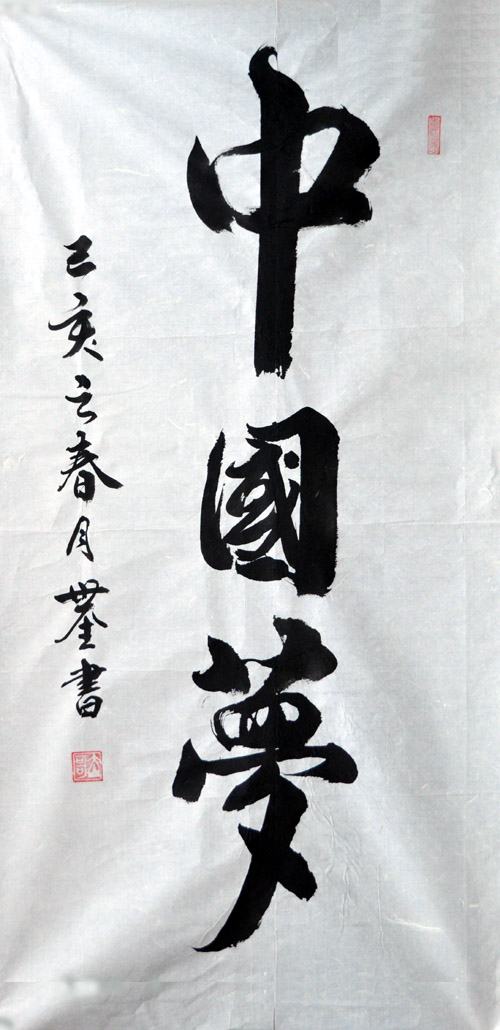 中國夢
己亥之春月世荃書